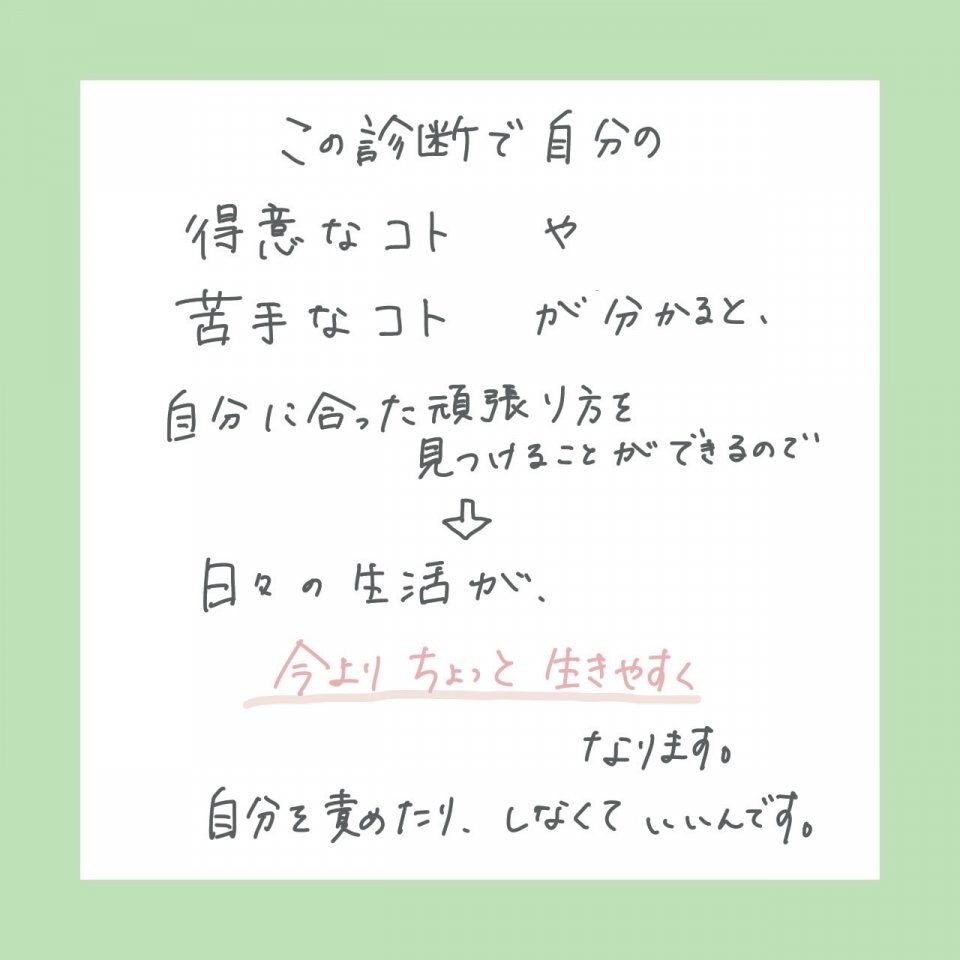 この診断で自分の
得意なコト や
苦手なコト が分かると、
自分に合った頑張り方を
見つけることができるので
⇩
日々の生活が、
今よりちょっと生きやすく
なります。
自分を責めたり、しなくていいんです。